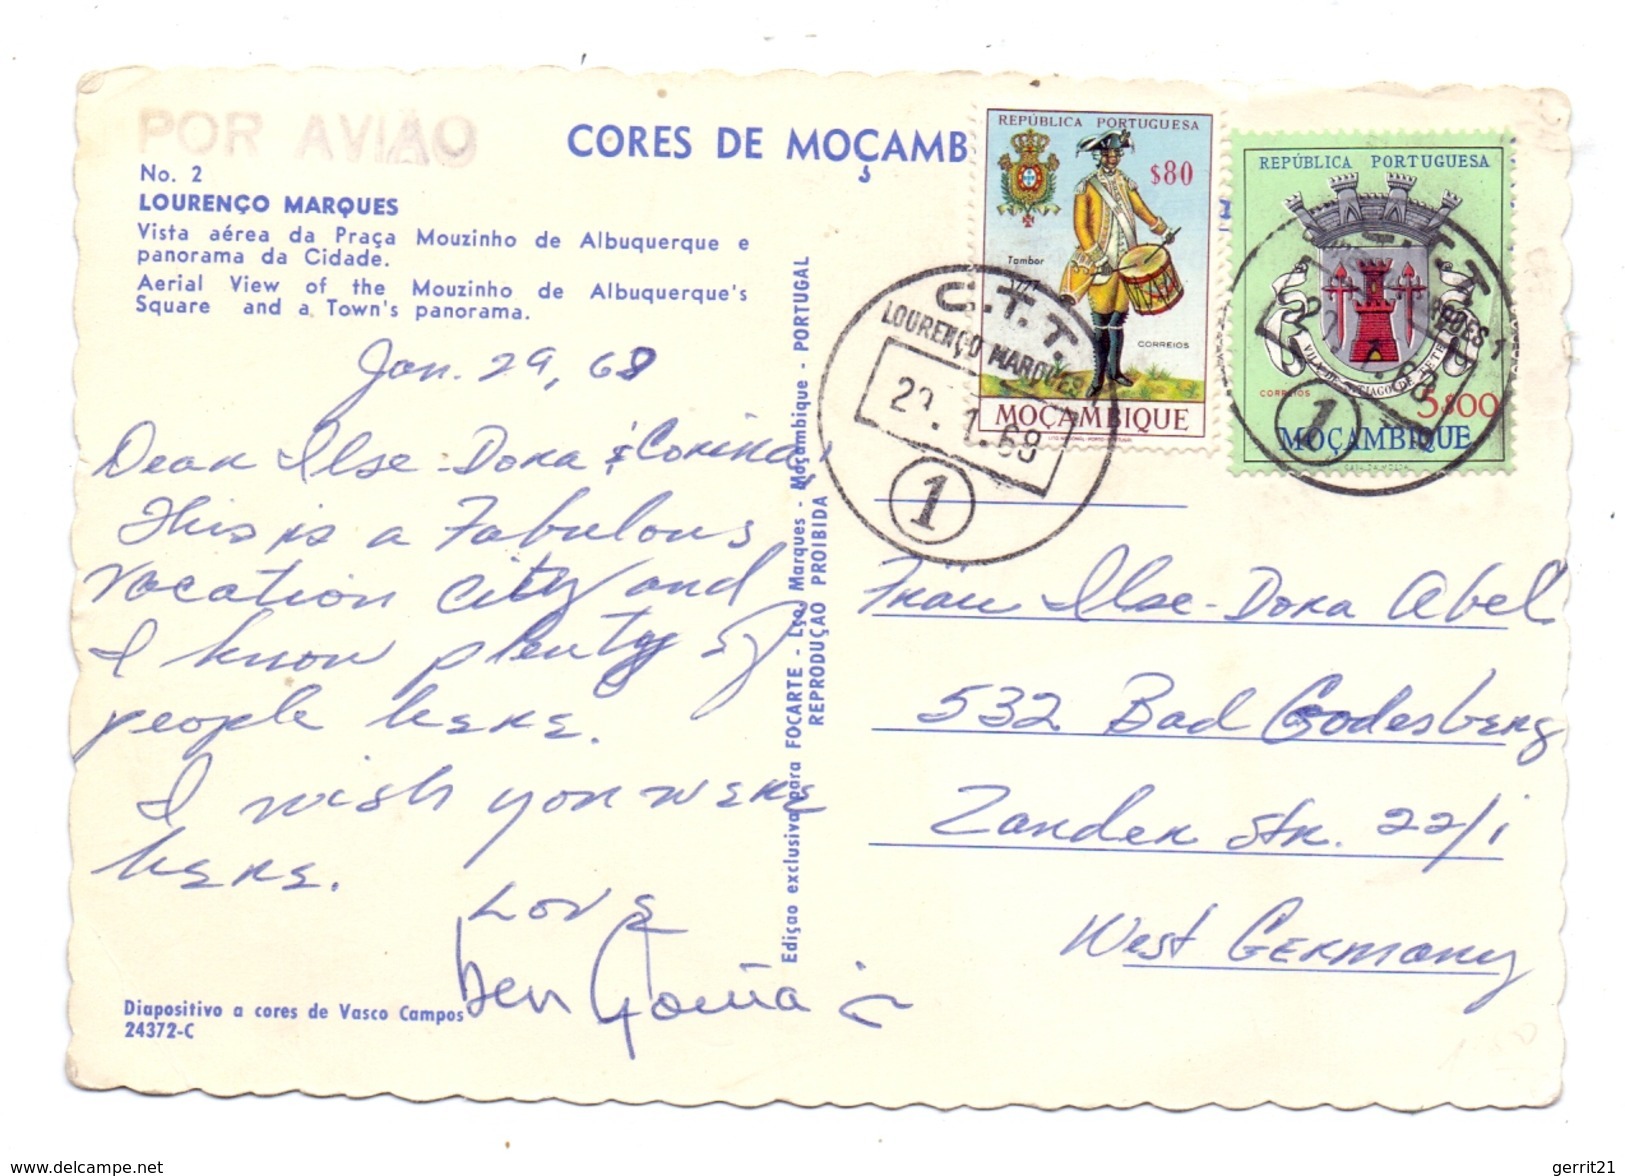 POR AVIÃO
CORES DE MOÇAMB
No. 2
LOURENÇO MARQUES
Vista aérea da Praça Mouzinho de Albuquerque e
panorama da Cidade.
Aerial View of the Mouzinho de Albuquerque's
Square and a Town's panorama.
Jan. 29, 68
Dear Ilse-Dora & Corina,
This is a Fabulous
vacation city and
I know plenty of
people here.
I wish you were
here.
Love
Diapositivo a cores de Vasco Campos
24372-C
Edição exclusiva para FOCARTE - Lço. Marques - Moçambique - PORTUGAL
REPRODUÇÃO PROIBIDA
REPÚBLICA PORTUGUESA
$80
Tambor
CORREIOS
MOÇAMBIQUE
REPÚBLICA PORTUGUESA
VILA DE SANTIAGO DE TETE
CORREIOS
5$00
MOÇAMBIQUE
C.T.T.
LOURENÇO MARQUES
1
1
Fräu Ilse-Dora Abel
532 Bad Godesberg
Zander Str. 22/i
West Germany
gerrit21
delcampe.net